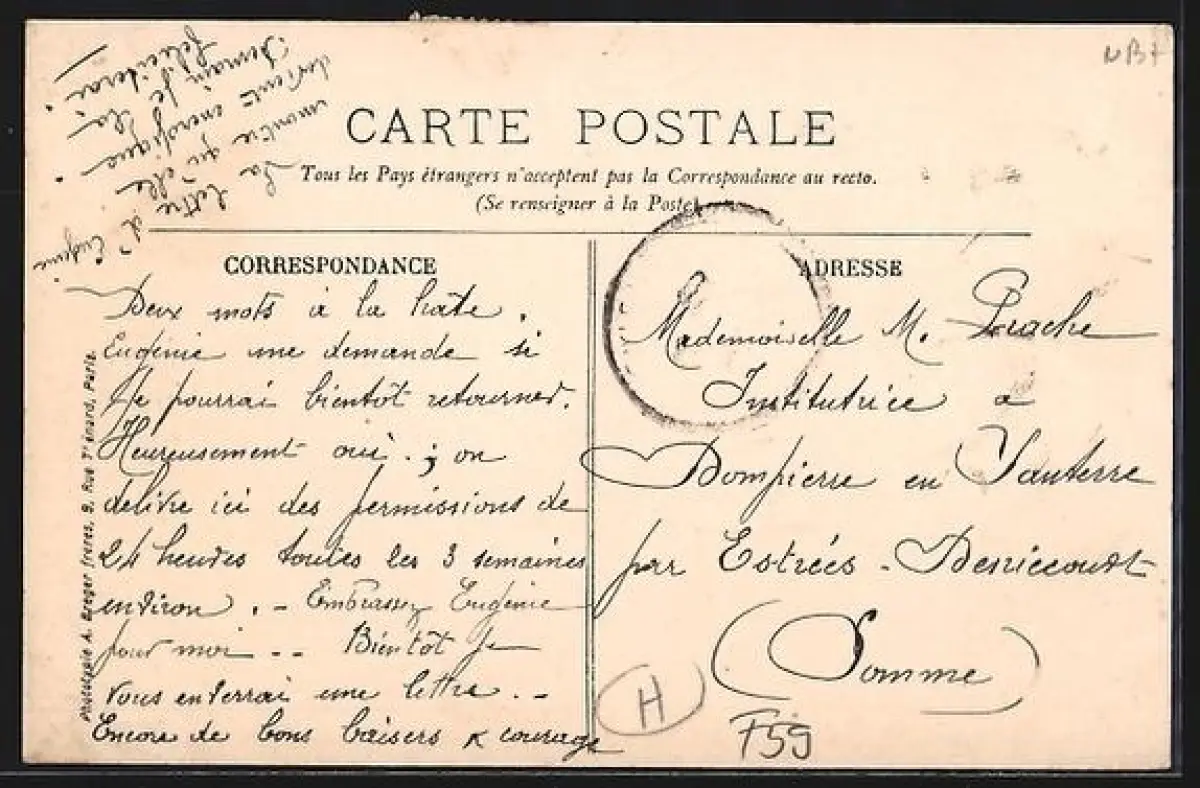 NB7
CARTE POSTALE
Tous les Pays étrangers n'acceptent pas la Correspondance au recto.
(Se renseigner à la Poste)
CORRESPONDANCE
Deux mots à la hâte.
Eugénie me demande si
je pourrai bientôt retourner.
Heureusement oui. ; on
délivre ici des permissions de
24 heures toutes les 3 semaines
environ. - Embrassez Eugénie
pour moi -- Bientôt je
vous enverrai une lettre. -
Encore de bons baisers & courage
La lettre d'Eugénie
montre qu'elle
devient énergique.
Demain je
féliciterai.
Phototypie A. Breger frères, 9, Rue Thénard, Paris.
ADRESSE
Mademoiselle M. Prache
Institutrice à
Dompierre en Santerre
par Estrées - Deniécourt
(Somme)
H
F59